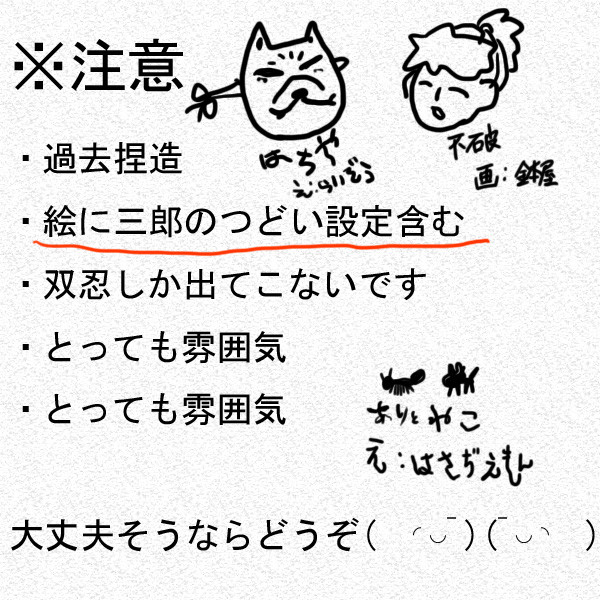 ※注意
はちや
え:らいぞう
不破
画:鉢屋
・過去捏造
・絵に三郎のつどい設定含む
・双忍しか出てこないです
・とっても雰囲気
・とっても雰囲気
ありとねこ
え:はさぢえもん
大丈夫そうならどうぞ( ◜◡‾)(‾◡◝ )